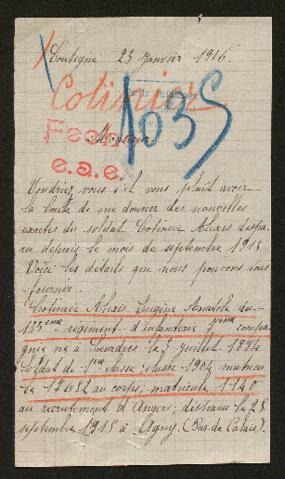 Contigné 23 Janvier 1916.
Cotinier
1035
Monsieur
Fech
e.a.e.
Voudriez vous s'il vous plaît avoir
la bonté de me donner des nouvelles
exactes du soldat Cotinier Alexis dispa-
ru depuis le mois de septembre 1915
Voici les détails que nous pouvons vous
fournir.
Cotinier Alexis Eugène Anatole du
135ème régiment d'infanterie 7ième compa-
gnie né à le 7 juillet 1884
Soldat de 1ère classe; classe 1904 matricu
le 17682 au corps; matricule 1140
au recrutement d'Angers; disparu le 25
septembre 1915 à Agny (Pas de Calais).